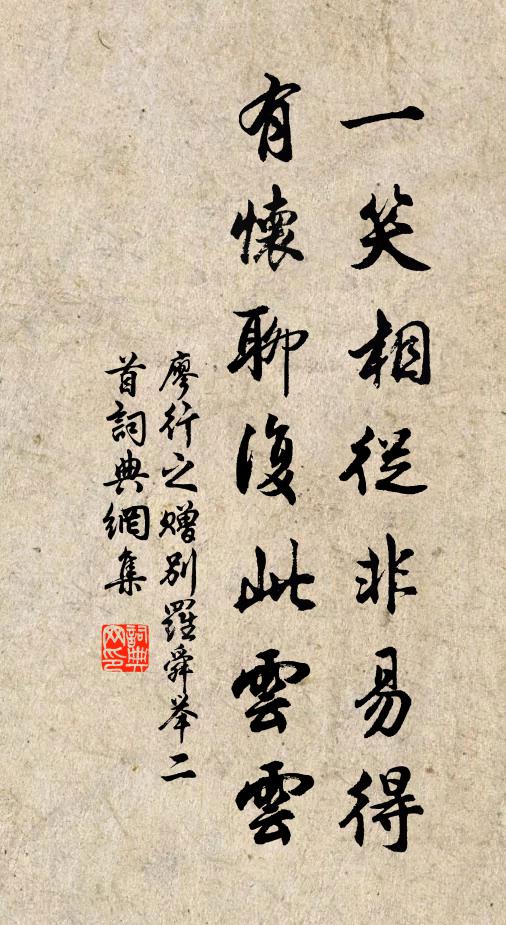 一笑相從非易得
有懷聊復此雲雲
廖行之贈別羅舜举二
首詞典網集
詞典
网印